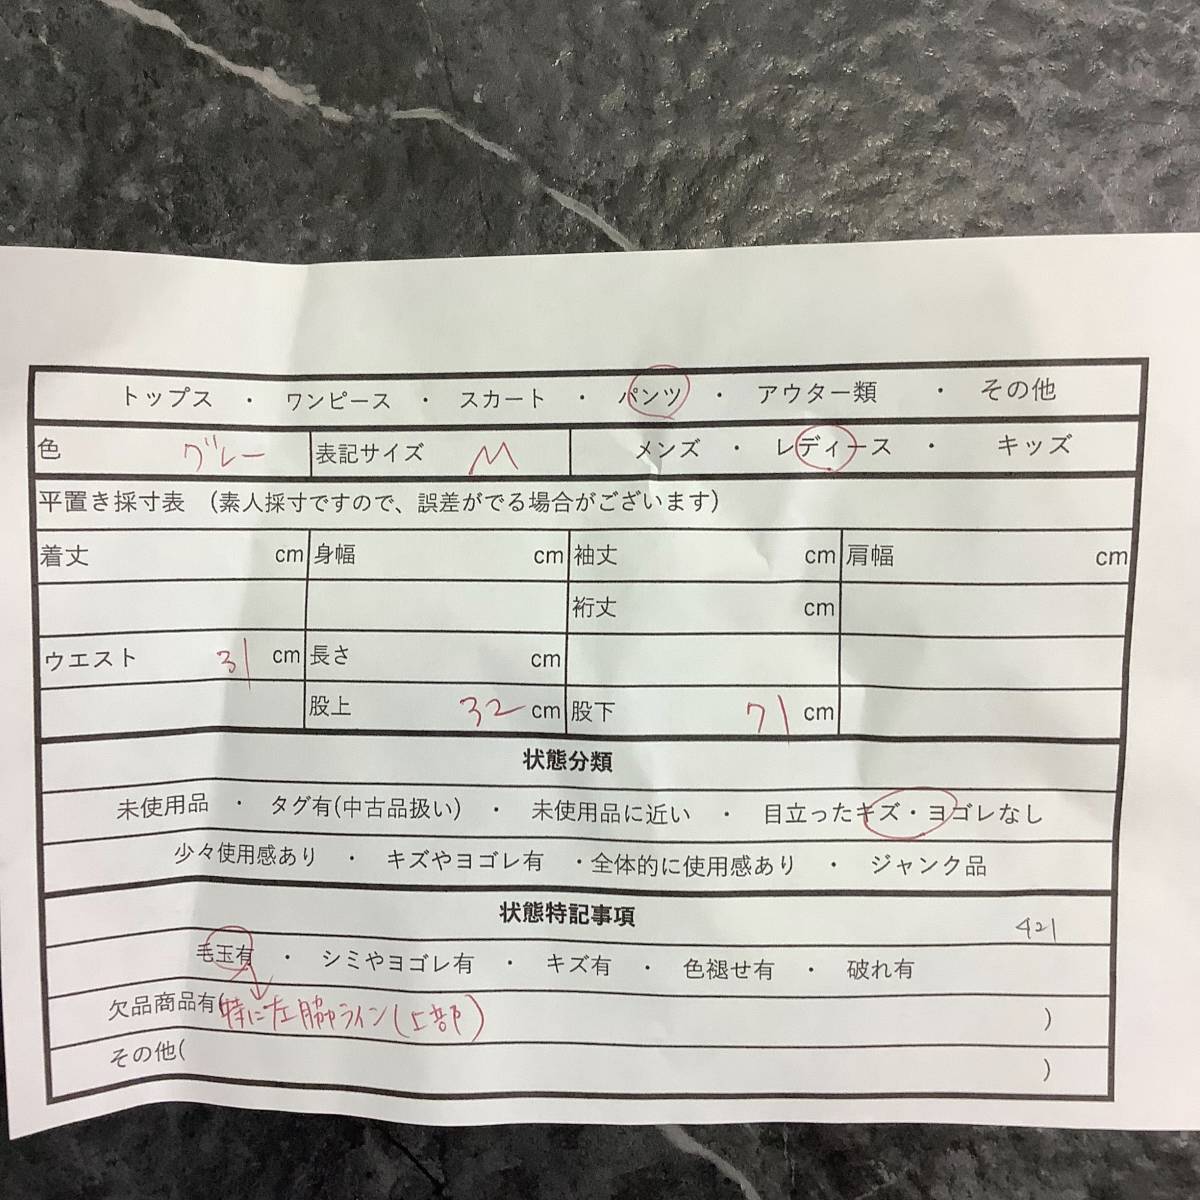 トップス ・ ワンピース ・ スカート ・ パンツ ・ アウター類 ・ その他
色 グレー 表記サイズ M メンズ ・ レディース ・ キッズ
平置き採寸表 (素人採寸ですので、誤差がでる場合がございます)
着丈 cm 身幅 cm 袖丈 cm 肩幅 cm
裄丈 cm
ウエスト 31 cm 長さ cm
股上 32 cm 股下 71 cm
状態分類
未使用品 ・ タグ有(中古品扱い) ・ 未使用品に近い ・ 目立ったキズ・ヨゴレなし
少々使用感あり ・ キズやヨゴレ有 ・全体的に使用感あり ・ ジャンク品
状態特記事項 421
毛玉有 ・ シミやヨゴレ有 ・ キズ有 ・ 色褪せ有 ・ 破れ有
欠品商品有(特に左脇ライン(上部) )
その他( )